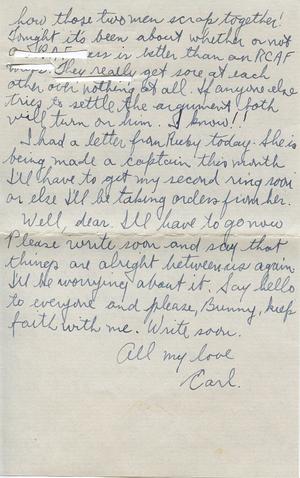 how those two men scrap together!
Tonight its been about whether or not
an RAF mess is better than an RCAF
They really get sore at each
other over nothing at all. If anyone else
tries to settle the argument both
will turn on him. I know!!
I had a letter from Ruby today. She is
being made a captain this month
I'll have to get my second ring soon
or else I'll be taking orders from her.
Well, dear. I'll have to go now
Please write soon and say that
things are alright between us again.
I'll be worrying about it. Say hello
to everyone and please, Bunny, keep
faith with me. Write soon.
All my love
Carl.